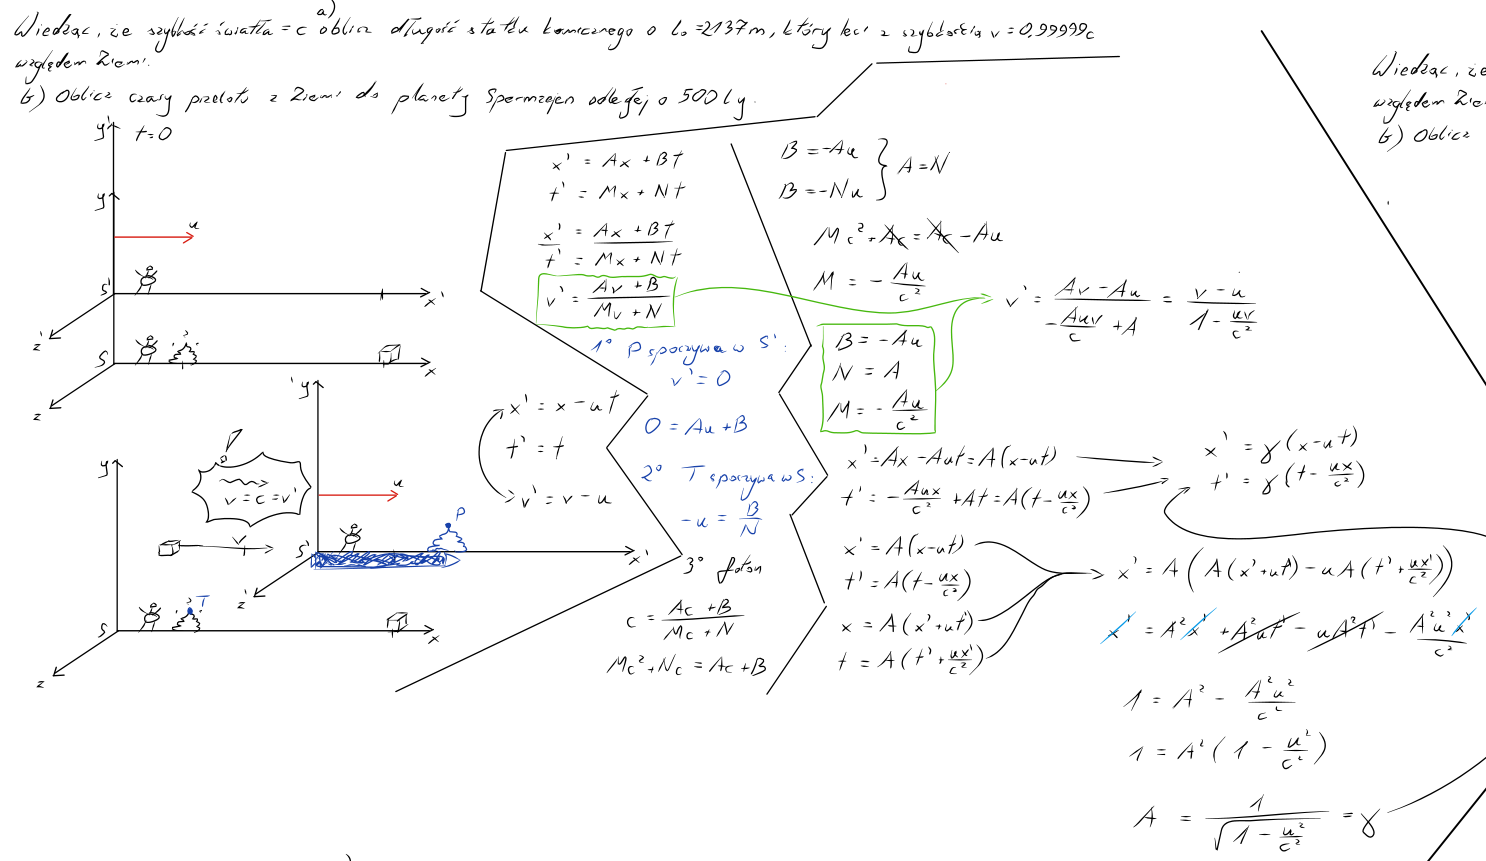 a)
Wiedząc, że szybkość światła = c oblicz długość statku komicznego o l₀ = 2137 m, który leci z szybkością v = 0,99999c
względem Ziemi.
b) Oblicz czasy przelotu z Ziemi do planety Spermzajen odległej o 500 ly.
Wiedząc, że
względem Zie
b) Oblicz
y'
t=0
y
u
S'
x'
z'
S
x
z
'y
y
v = c = v'
u
P
v
S'
x'
z'
T
S
x
z
x' = x - ut
t' = t
v' = v - u
x' = Ax + Bt
t' = Mx + Nt
x'/t' = (Ax + Bt)/(Mx + Nt)
v' = (Av + B)/(Mv + N)
1° P spoczywa w S':
v' = 0
0 = Au + B
2° T spoczywa w S:
-u = B/N
3° foton
c = (Ac + B)/(Mc + N)
Mc² + Nc = Ac + B
B = -Au
B = -Nu
} A = N
Mc² + Ac = Ac - Au
M = - Au/c²
B = -Au
N = A
M = - Au/c²
v' = (Av - Au)/(-Auv/c² + A) = (v - u)/(1 - uv/c²)
x' = Ax - Aut = A(x-ut)
t' = - Aux/c² + At = A(t - ux/c²)
x' = γ(x-ut)
t' = γ(t - ux/c²)
x' = A(x-ut)
t' = A(t - ux/c²)
x = A(x'+ut')
t = A(t' + ux'/c²)
x' = A(A(x'+ut') - uA(t' + ux'/c²))
x' = A²x' + A²ut' - uA²t' - A²u²x'/c²
1 = A² - A²u²/c²
1 = A²(1 - u²/c²)
A = 1/√(1 - u²/c²) = γ